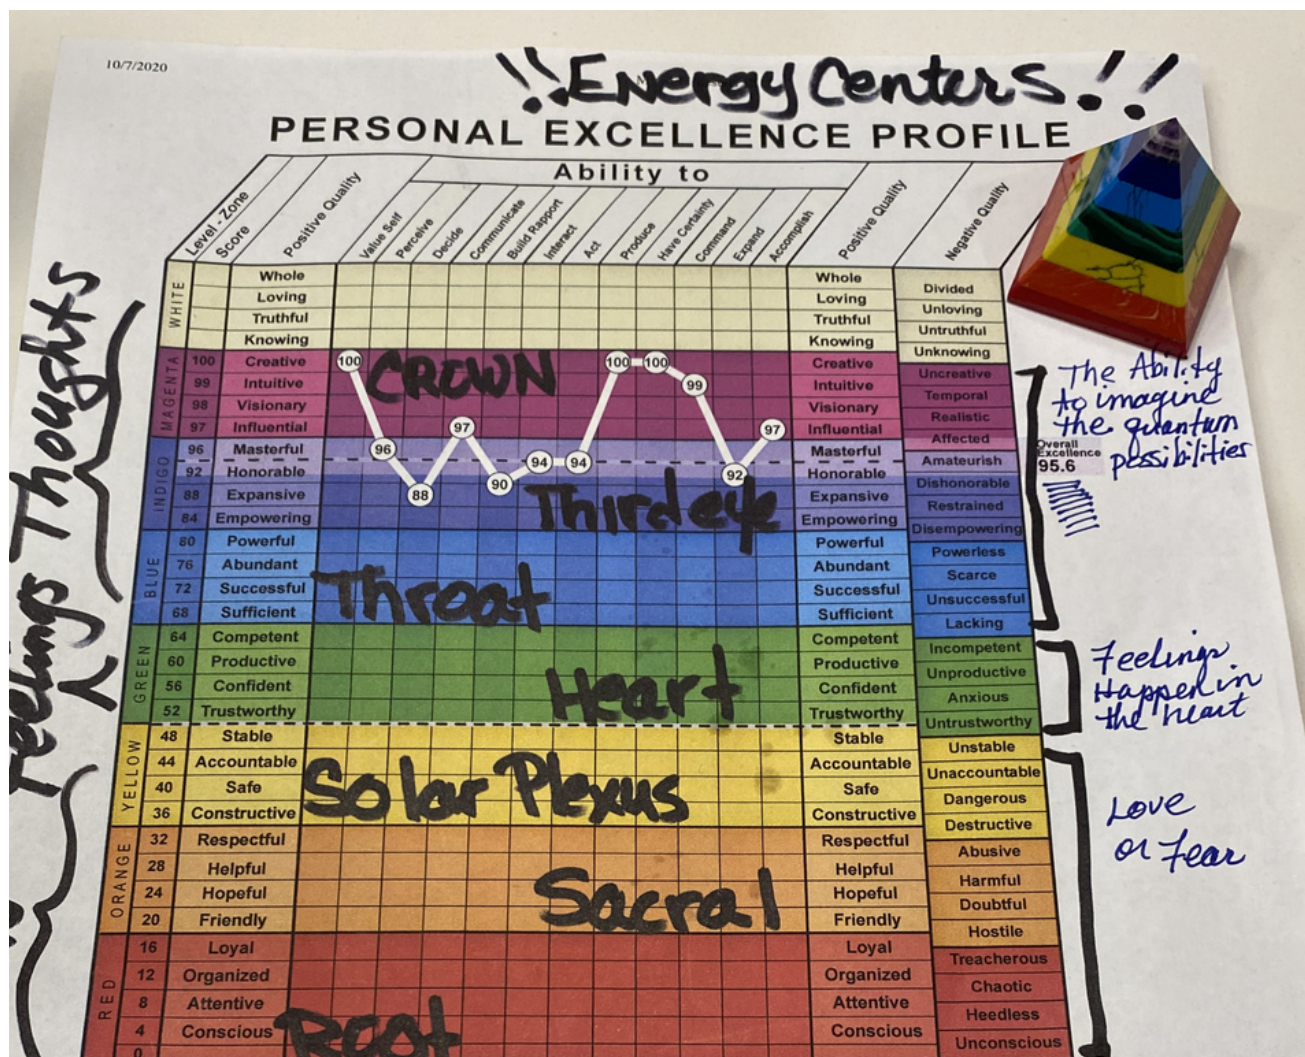 10/7/2020
!! Energy Centers!!
PERSONAL EXCELLENCE PROFILE
Ability to
Level - Zone
Score
Positive Quality
Value Self
Perceive
Decide
Communicate
Build Rapport
Interact
Act
Produce
Have Certainty
Command
Expand
Accomplish
Positive Quality
Negative Quality
WHITE
Whole Whole Divided
Loving Loving Unloving
Truthful Truthful Untruthful
Knowing Knowing Unknowing
MAGENTA
100 Creative Creative Uncreative
99 Intuitive Intuitive Temporal
98 Visionary Visionary Realistic
97 Influential Influential Affected
100 96 88 97 90 94 94 100 100 99 92 97
CROWN
INDIGO
96 Masterful Masterful Amateurish
92 Honorable Honorable Dishonorable
88 Expansive Expansive Restrained
84 Empowering Empowering Disempowering
Third eye
BLUE
80 Powerful Powerful Powerless
76 Abundant Abundant Scarce
72 Successful Successful Unsuccessful
68 Sufficient Sufficient Lacking
Throat
GREEN
64 Competent Competent Incompetent
60 Productive Productive Unproductive
56 Confident Confident Anxious
52 Trustworthy Trustworthy Untrustworthy
Heart
YELLOW
48 Stable Stable Unstable
44 Accountable Accountable Unaccountable
40 Safe Safe Dangerous
36 Constructive Constructive Destructive
Solar Plexus
ORANGE
32 Respectful Respectful Abusive
28 Helpful Helpful Harmful
24 Hopeful Hopeful Doubtful
20 Friendly Friendly Hostile
Sacral
RED
16 Loyal Loyal Treacherous
12 Organized Organized Chaotic
8 Attentive Attentive Heedless
4 Conscious Conscious Unconscious
0
Root
The Ability
to imagine
the quantum
possibilities
Overall
Excellence
95.6
Feelings
Happen in
the heart
Love
or Fear
Thoughts
Feelings